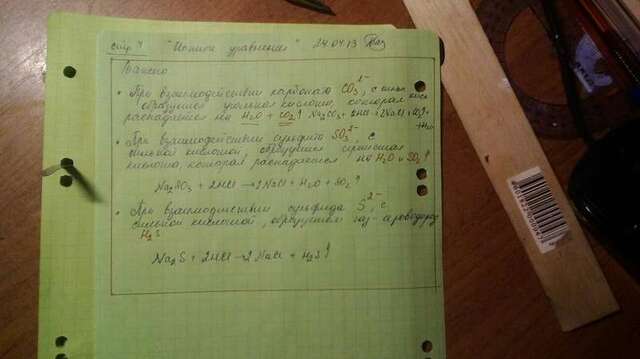 стр 4 "Ионные уравнения" 24.04.13
Важно
• При взаимодействии карбоната CO₃²⁻, с
образуется угольная кислота, которая
распадается на H₂O + CO₂↑ Na₂CO₃ + 2HCl → 2NaCl + CO₂↑
+H₂O
• При взаимодействии сульфита SO₃²⁻, с
сильной кислотой, образуется сернистая
кислота, которая распадается на H₂O и SO₂↑
Na₂SO₃ + 2HCl → 2NaCl + H₂O + SO₂↑
• При взаимодействии сульфида S²⁻, с
сильной кислотой, образуется газ - сероводород
H₂S
Na₂S + 2HCl → 2NaCl + H₂S↑